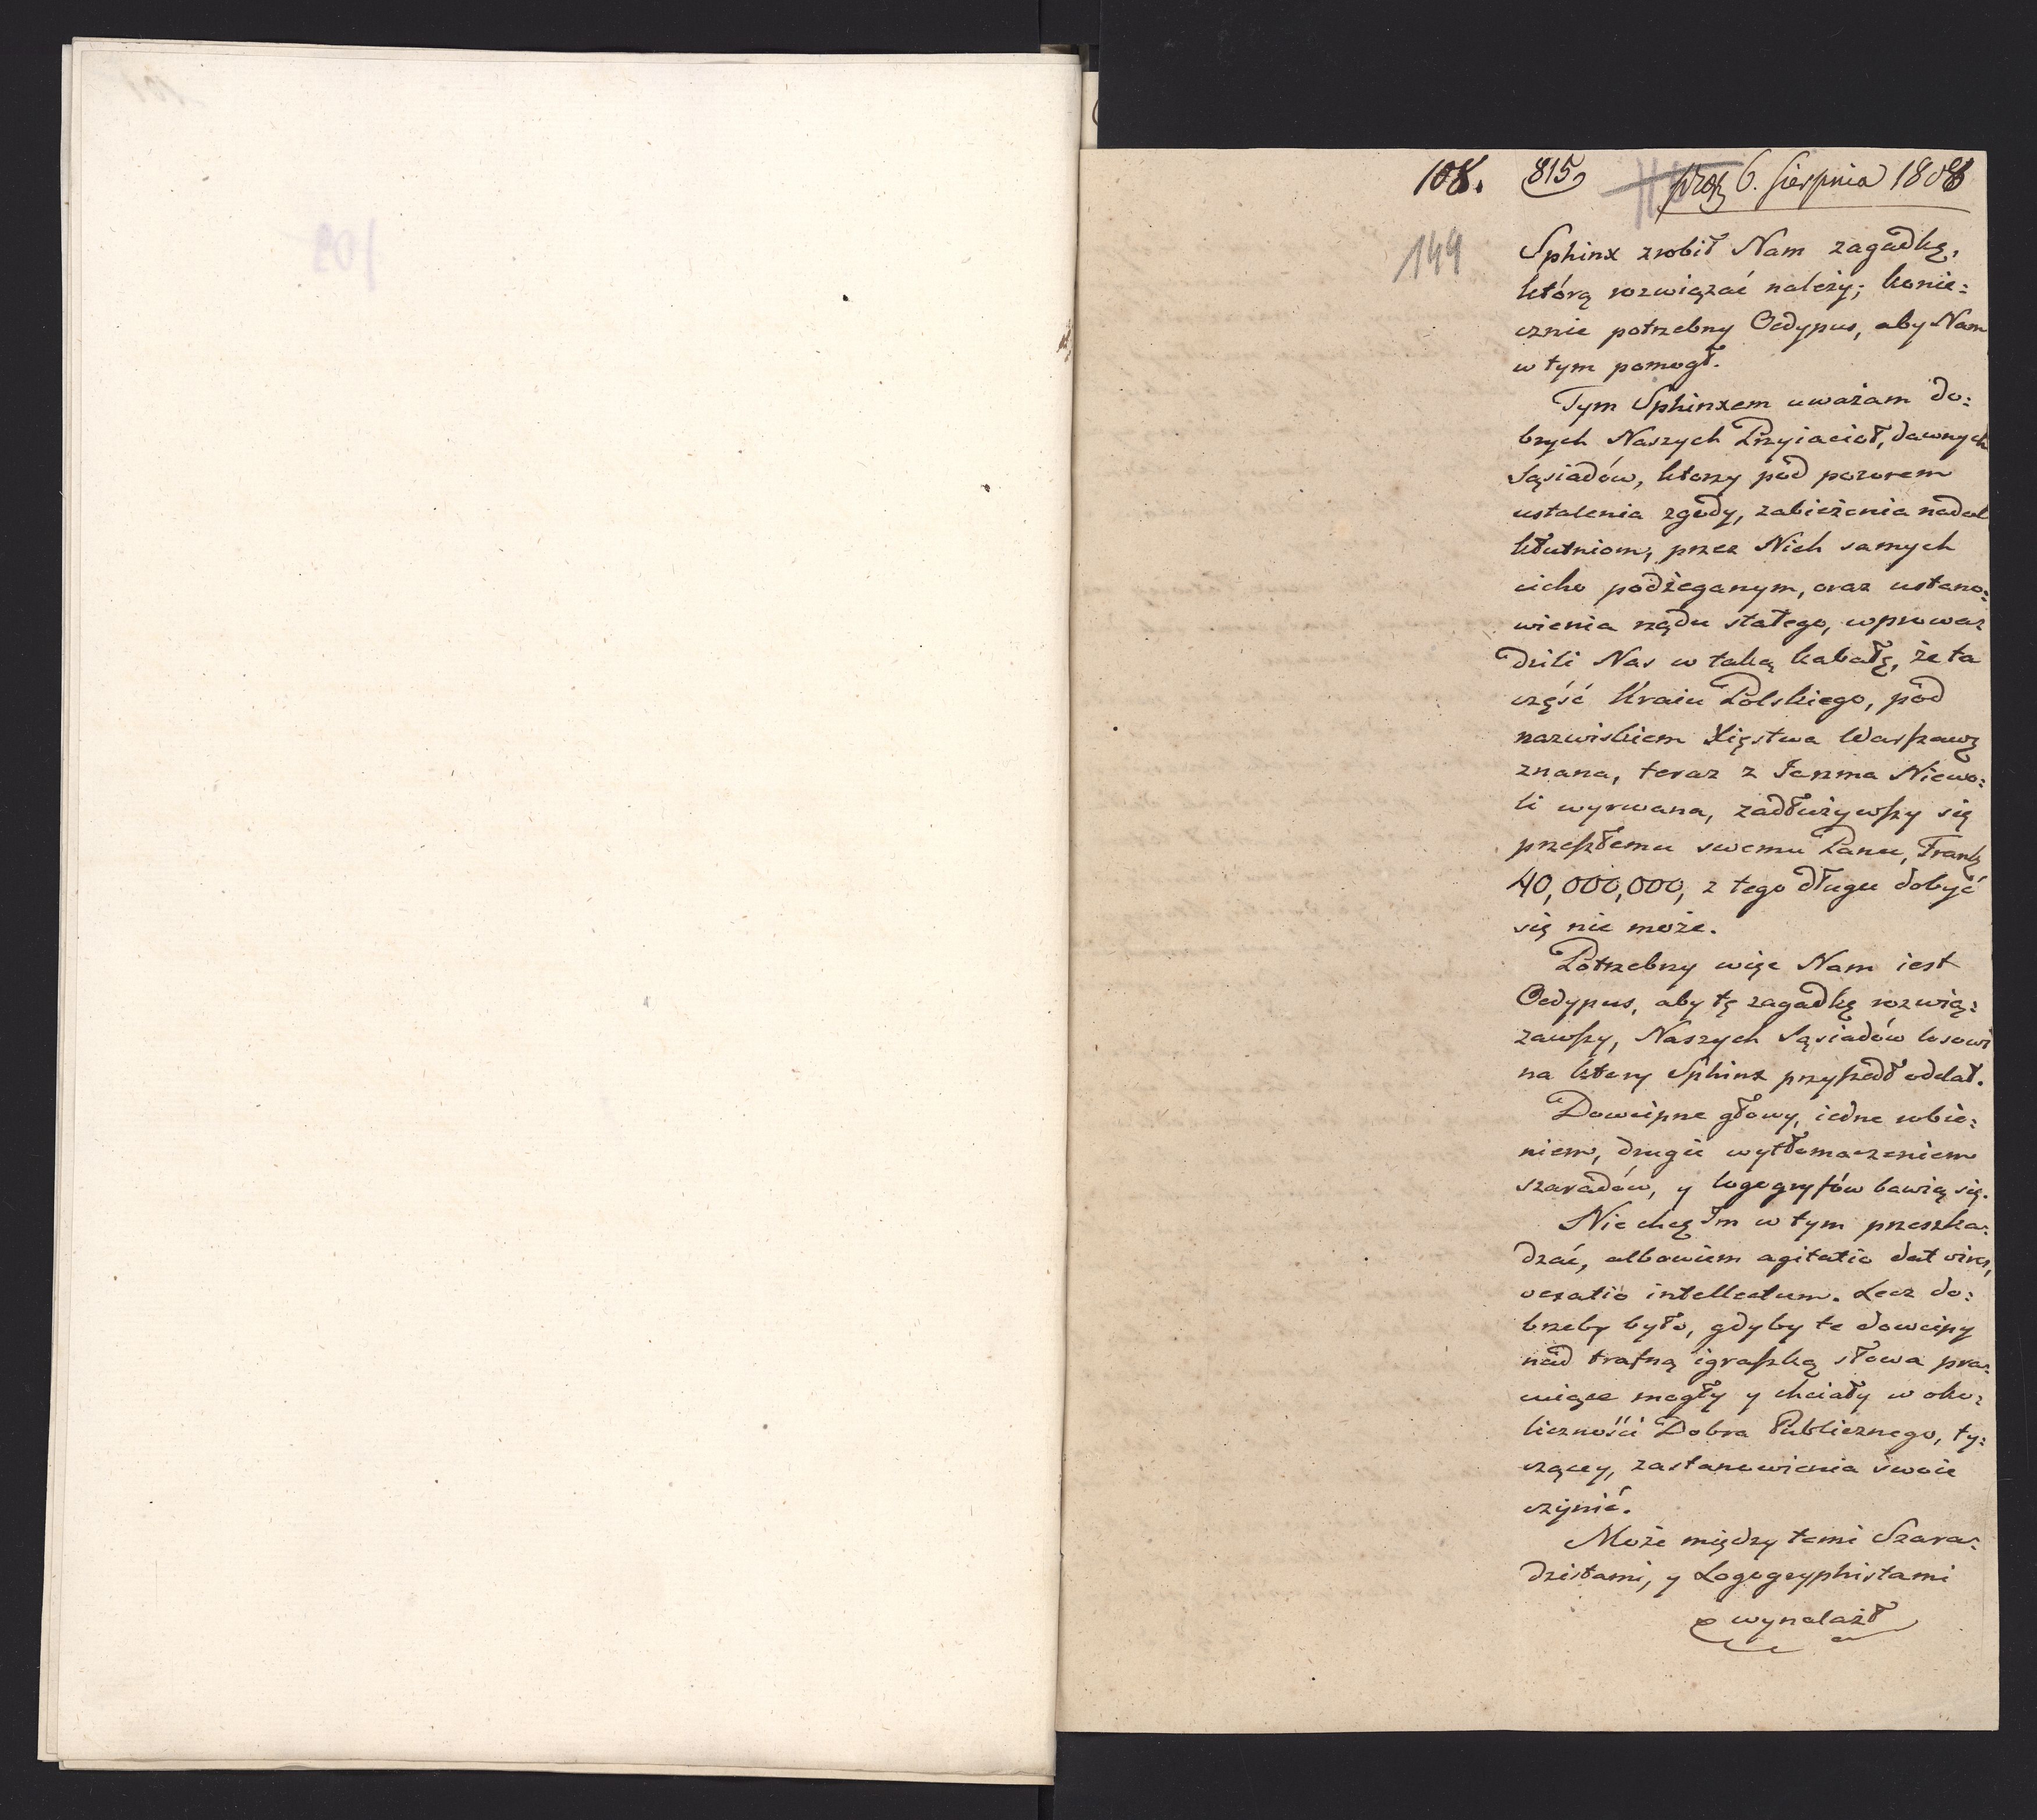 108. 815 6. Sierpnia 1808
144
Sphinx zrobił Nam zagadkę,
którą rozwiązać należy; konie:
cznie potrzebny Oedypus, aby Nam
w tym pomogł.
Tym Sphinxem uważam do:
brych Naszych Przyiacioł, dawnych
Sąsiadów, ktorzy pod pozorem
ustalenia zgody, zabieżenia nadal
kłutniom, przez Nich samych
cicho podżeganym, oraz ustano:
wienia rządu stałego, wprowa:
dzili Nas w taką kabałę, że ta
część Kraiu Polskiego, pod
nazwiskiem Xięstwa Warszawz
znana, teraz z Jarzma Niewo:
li wyrwana, zadłużywszy się
przeszłemu swemu Panu, Frank
40,000,000, z tego długu dobyć
się nie może.
Potrzebny więc Nam iest
Oedypus, aby tę zagadkę rozwią:
zawszy, Naszych Sąsiadów losowi
na ktory Sphinx przyszedł oddał.
Dowcipne głowy, iedne robie:
niem, drugie wytłomaczeniem
szaradów, y logogryfów bawią się.
Nie chcę Im w tym przeszka:
dzać, albowiem agitatio dat vires,
vexatio intellectum. Lecz do:
brzeby było, gdyby te dowcipy
nad trafną igraszką słowa pra:
cuiące mogły y chciały w oko:
liczności Dobra Publicznego, ty:
czącey, zastanowienia swoie
czynić.
Może między temi Szara:
dzistami, y Logogryphistami
wynalazł